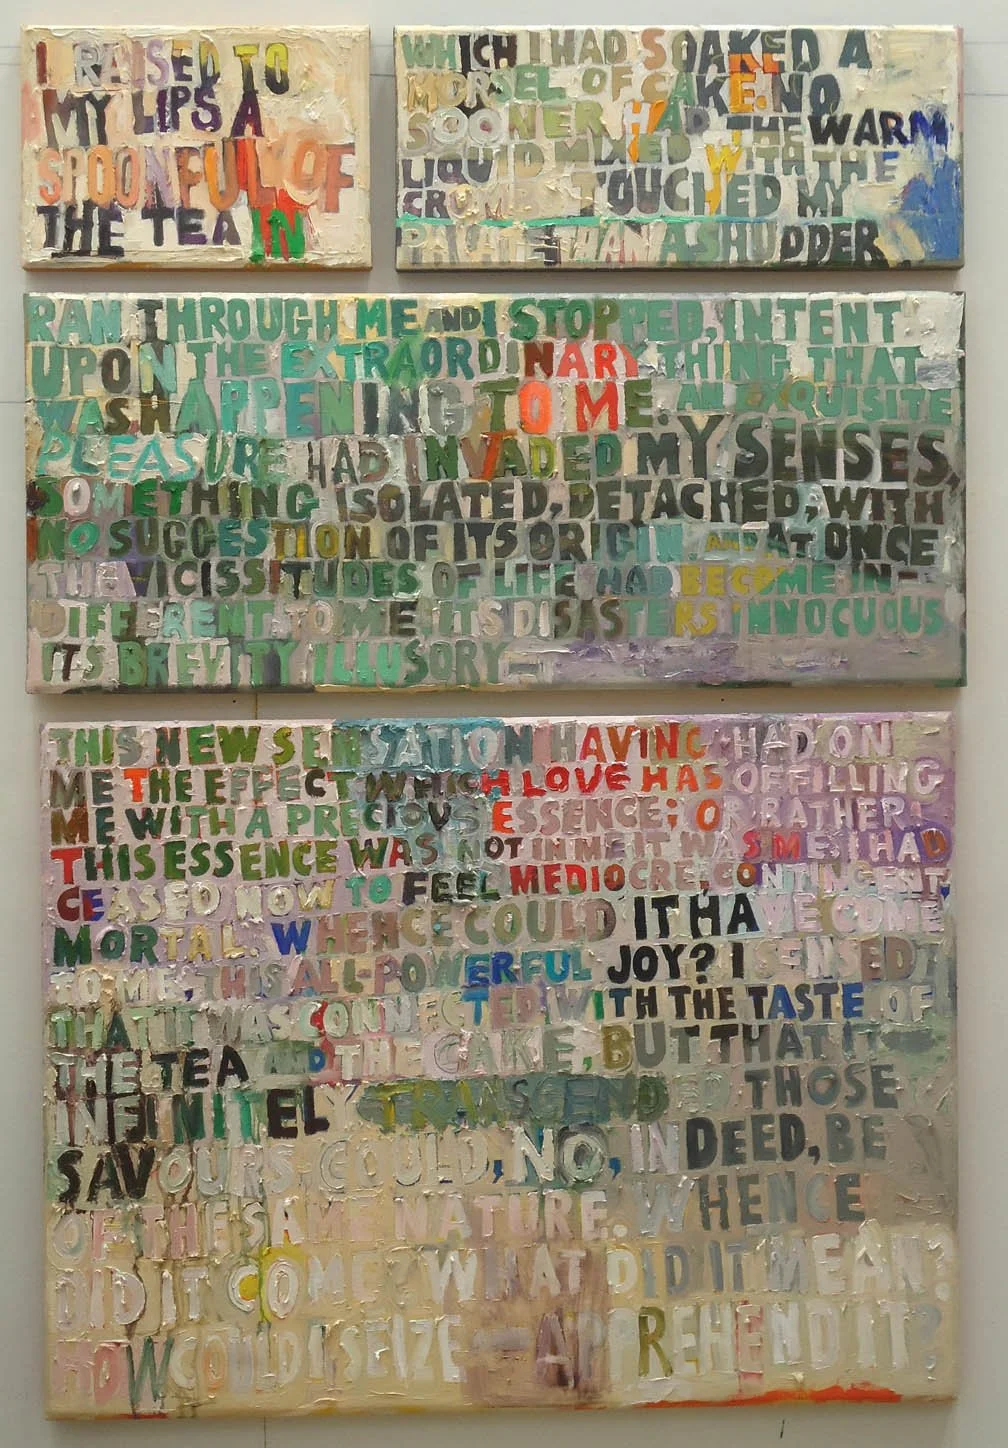 I RAISED TO
MY LIPS A
SPOONFUL OF
THE TEA IN
WHICH I HAD SOAKED A
MORSEL OF CAKE. NO
SOONER HAD THE WARM
LIQUID MIXED WITH THE
CRUMBS TOUCHED MY
PALATE THAN A SHUDDER
RAN THROUGH ME AND I STOPPED, INTENT
UPON THE EXTRAORDINARY THING THAT
WAS HAPPENING TO ME. AN EXQUISITE
PLEASURE HAD INVADED MY SENSES,
SOMETHING ISOLATED, DETACHED, WITH
NO SUGGESTION OF ITS ORIGIN. AND AT ONCE
THE VICISSITUDES OF LIFE HAD BECOME IN-
DIFFERENT TO ME, ITS DISASTERS INNOCUOUS
ITS BREVITY ILLUSORY—
THIS NEW SENSATION HAVING HAD ON
ME THE EFFECT WHICH LOVE HAS OF FILLING
ME WITH A PRECIOUS ESSENCE; OR RATHER
THIS ESSENCE WAS NOT IN ME IT WAS ME. I HAD
CEASED NOW TO FEEL MEDIOCRE, CONTINGENT,
MORTAL. WHENCE COULD IT HAVE COME
TO ME, THIS ALL-POWERFUL JOY? I SENSED
THAT IT WAS CONNECTED WITH THE TASTE OF
THE TEA AND THE CAKE, BUT THAT IT
INFINITELY TRANSCENDED THOSE
SAVOURS, COULD, NO, INDEED, BE
OF THE SAME NATURE. WHENCE
DID IT COME? WHAT DID IT MEAN?
HOW COULD I SEIZE — APPREHEND IT?